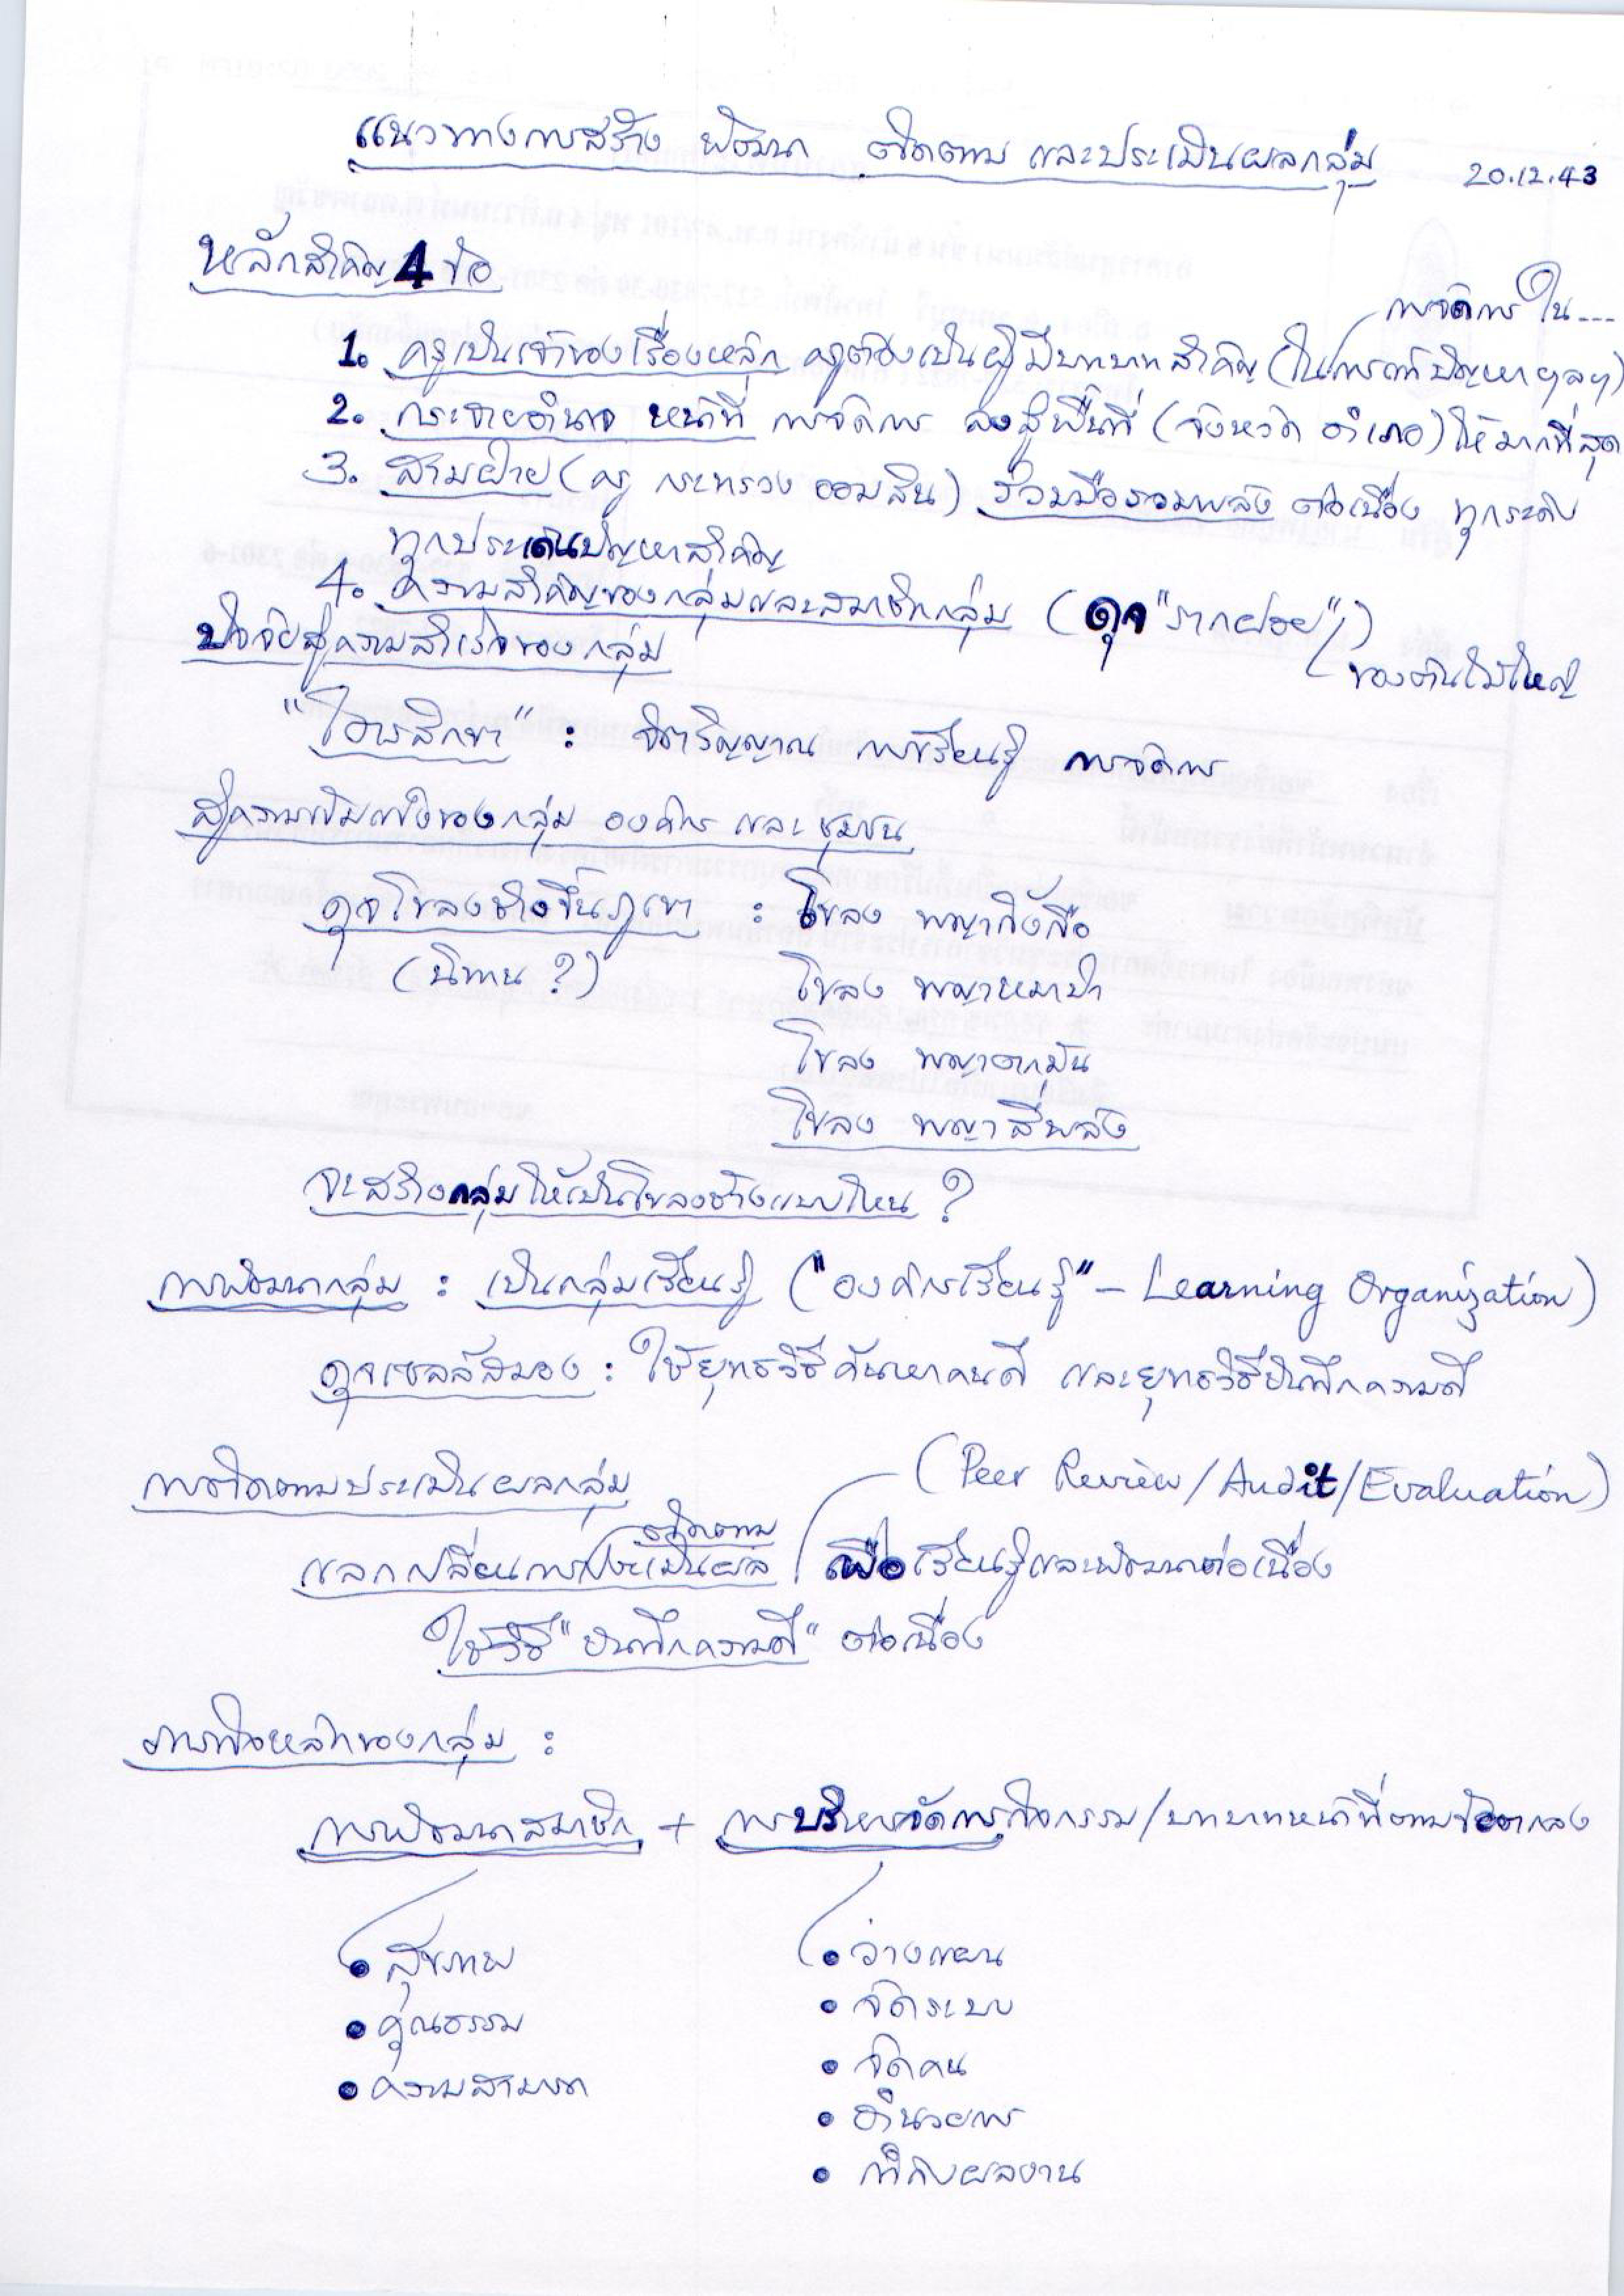 แนวทางการสร้าง พัฒนา ติดตาม และประเมินผลกลุ่ม 20.12.43
หลักสำคัญ 4 ข้อ
การจัดการ ใน...
1. ครูเป็นเจ้าของเรื่องหลัก ครูต้องเป็นผู้มีบทบาทสำคัญ (ในการแก้ปัญหาฯลฯ)
2. กระจายอำนาจ หน้าที่ การจัดการ ลงสู่พื้นที่ (จังหวัด อำเภอ) ให้มากที่สุด
3. สามฝ่าย (ครู กระทรวง ออมสิน) ร่วมมือรวมพลัง ต่อเนื่อง ทุกระดับ
ทุกประเด็นปัญหาสำคัญ
4. ความสำคัญของกลุ่มและสมาชิกกลุ่ม (ดุจ "รากฝอย")
ของต้นไม้ใหญ่
ปัจจัยสู่ความสำเร็จของกลุ่ม
"ไตรสิกขา" : จิตวิญญาณ การเรียนรู้ การจัดการ
สู่ความเข้มแข็งของกลุ่ม องค์กร และชุมชน
ดุจโขลงช้างขึ้นภูเขา : โขลง พญากิ้งกือ
(นิทาน ?) โขลง พญาหมาป่า
โขลง พญาตกมัน
โขลง พญาสี่พลัง
จะสร้างกลุ่มให้เป็นโขลงช้างแบบไหน ?
การพัฒนากลุ่ม : เป็นกลุ่มเรียนรู้ ("องค์กรเรียนรู้" – Learning Organization)
ดุจเซลล์สมอง : ใช้ยุทธวิธีค้นหาคนดี และยุทธวิธีบันทึกความดี
การติดตามประเมินผลกลุ่ม (Peer Review/Audit/Evaluation)
ติดตาม
แลกเปลี่ยนการประเมินผล เพื่อเรียนรู้และพัฒนาต่อเนื่อง
ใช้วิธี "บันทึกความดี" ต่อเนื่อง
ภารกิจหลักของกลุ่ม :
การพัฒนาสมาชิก + การบริหารจัดการกิจกรรม/บทบาทหน้าที่ตามข้อตกลง
• สุขภาพ • วางแผน
• คุณธรรม • จัดระบบ
• ความสามารถ • จัดคน
• อำนวยการ
• กำกับผลงาน